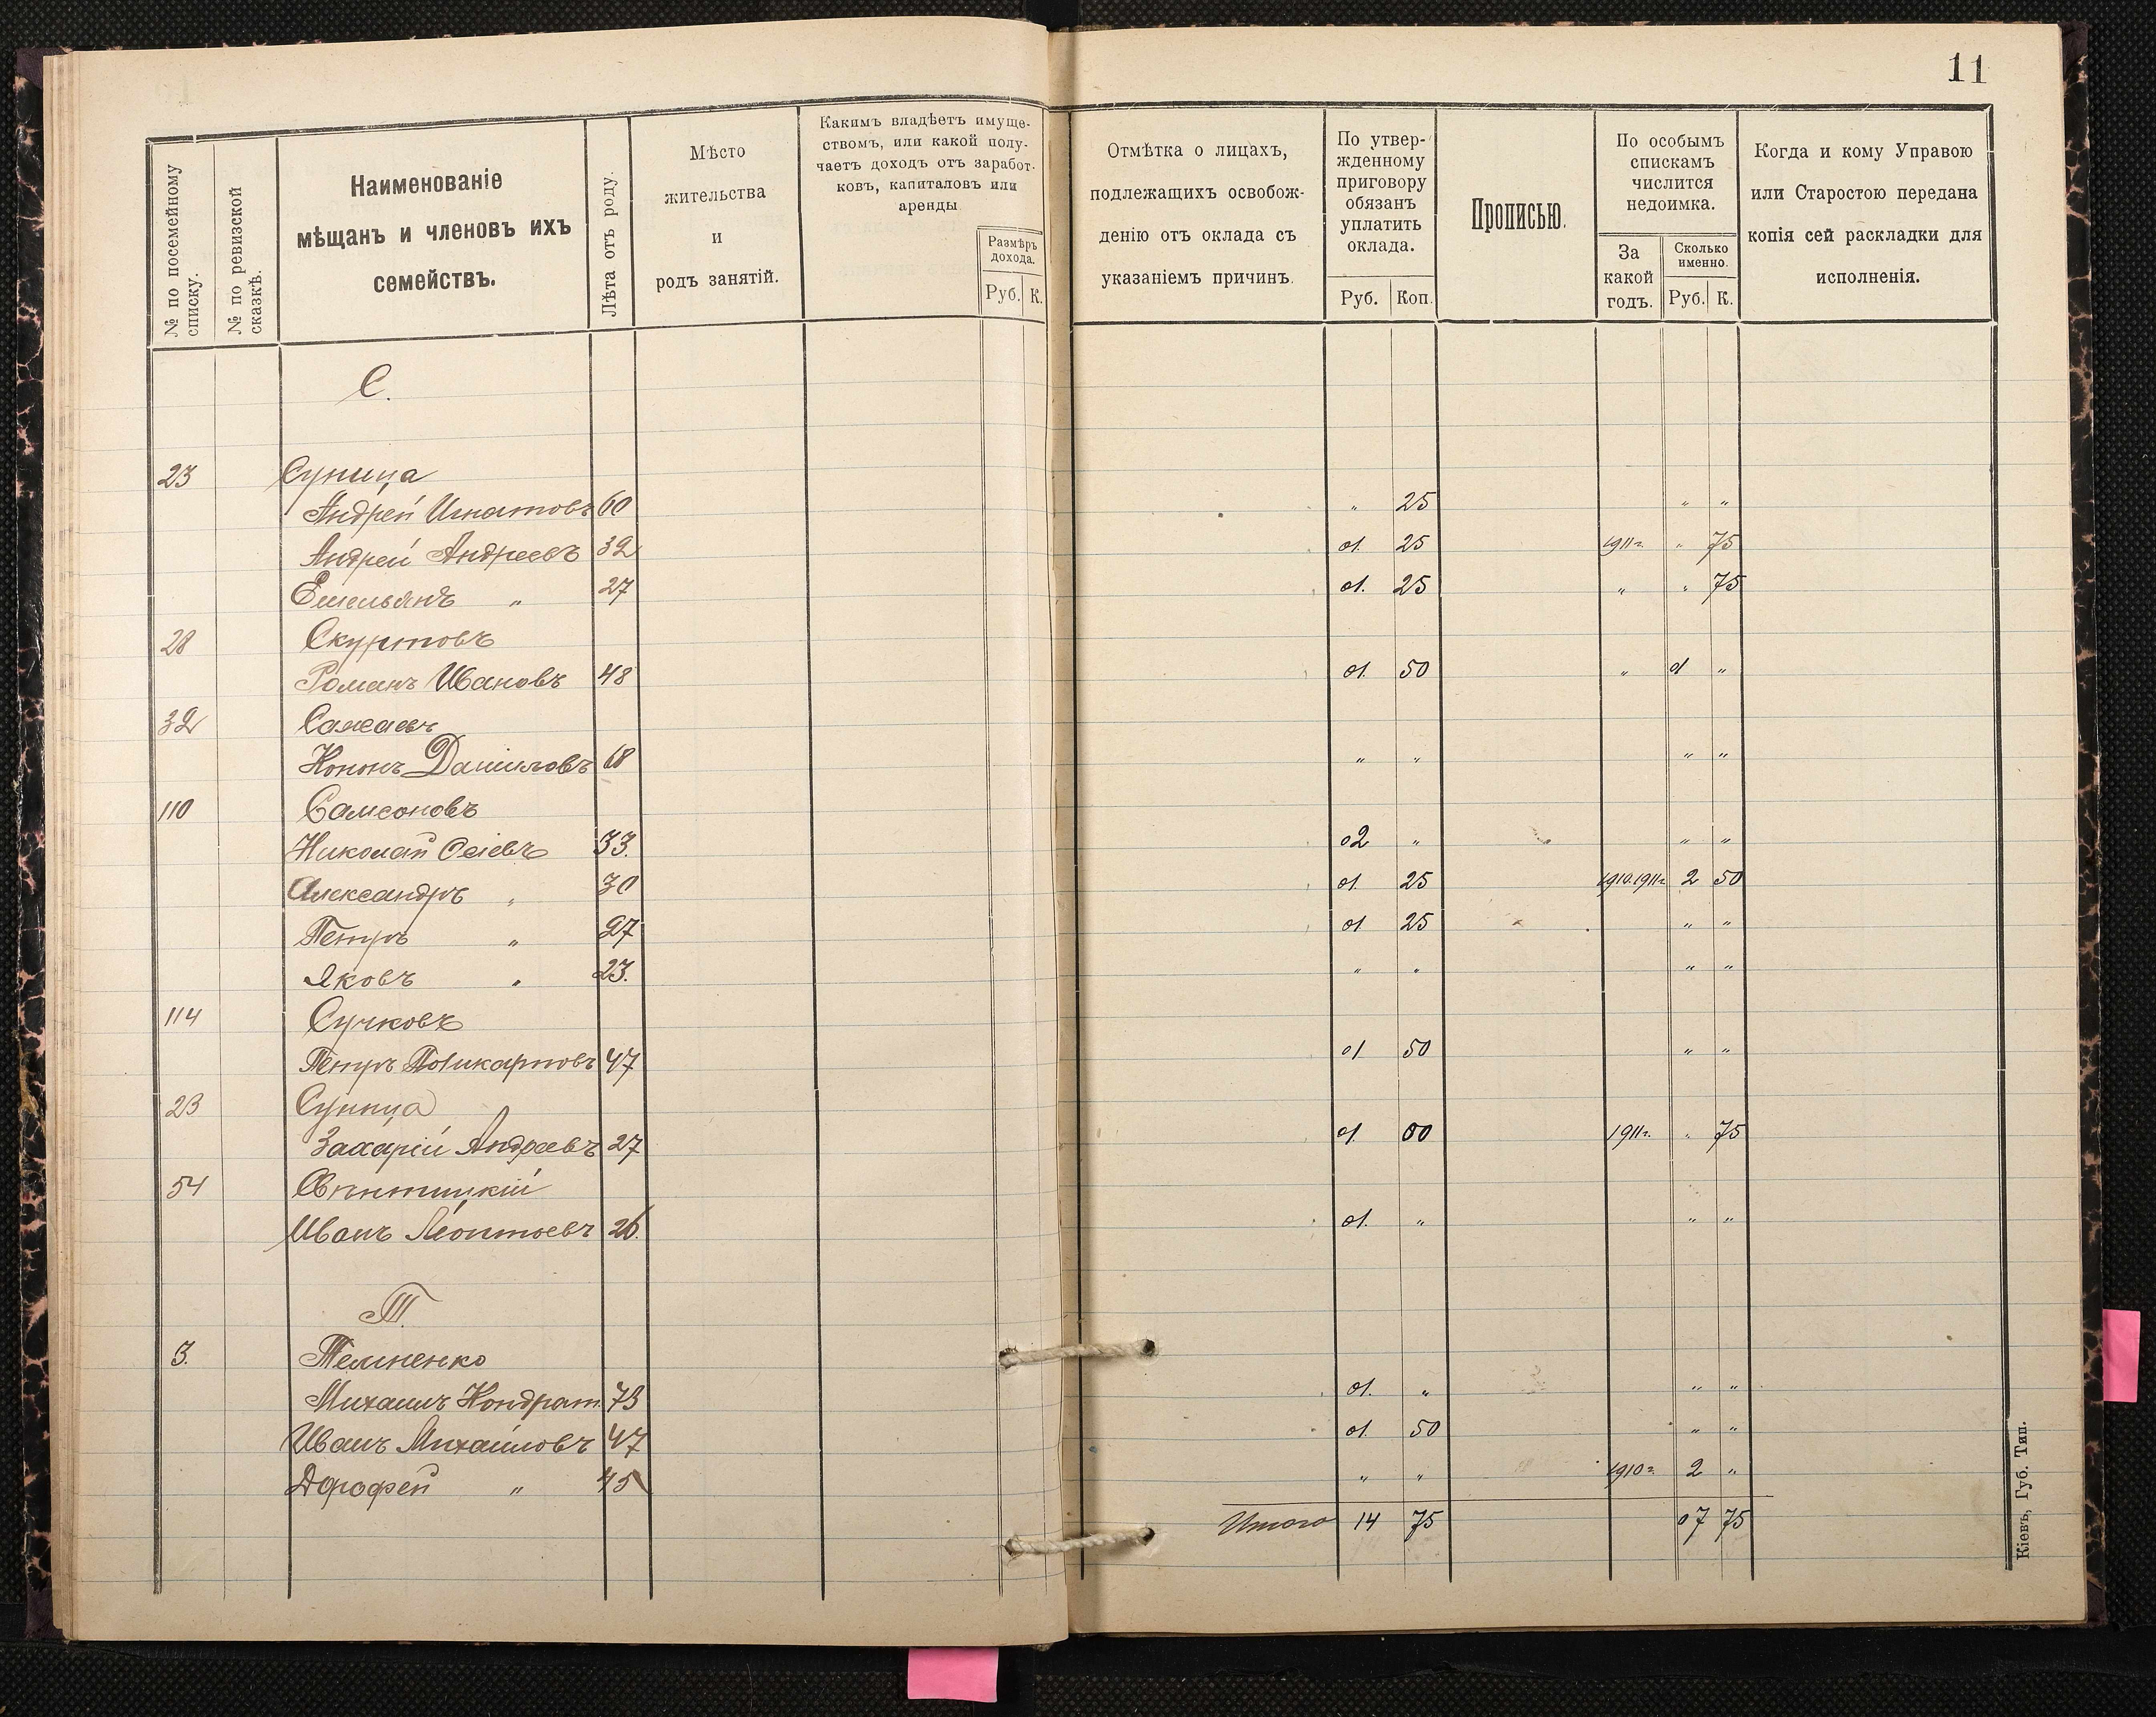 11
№ по посемейному списку.
№ по ревизской сказкѣ.
Наименованіе
мѣщанъ и членовъ ихъ
семействъ.
Лѣта отъ роду.
Мѣсто
жительства
и
родъ занятій.
Какимъ владѣетъ имуще-
ствомъ, или какой полу-
чаетъ доходъ отъ заработ-
ковъ, капиталовъ или
аренды
Размѣръ
дохода.
Руб. К.
Отмѣтка о лицахъ,
подлежащихъ освобож-
денію отъ оклада съ
указаніемъ причинъ.
По утвер-
жденному
приговору
обязанъ
уплатить
оклада.
Руб. Коп.
Прописью.
По особымъ
спискамъ
числится
недоимка.
За
какой
годъ.
Сколько
именно.
Руб. К.
Когда и кому Управою
или Старостою передана
копія сей раскладки для
исполненія.
С.
23 Суница
Андрей Игнатовъ 60 " 25 " "
Андрей Андреевъ 32 01. 25 1911г. " 75
Емельянъ " 27 01. 25 " " 75
28 Скуртовъ
Романъ Ивановъ 48 01. 50 " 1 "
32
Кононъ Даниловъ 68 " " " "
110 Самсоновъ
Николай 33. 02 " " "
Александръ " 30 01. 25 1910.1911г. 2 50
Петръ " 27 01 25 " "
Яковъ " 23. " " " "
114 Сучковъ
Петръ Поликарповъ 47 01 50 " "
23 Суница
Захарій Андреевъ 27 01. 00 1911г. " 75
54 Свентицкій
Иванъ Леонтьевъ 26. 01. " " "
Т.
3. Темненко
Михаилъ Кондрат. 73 01. " " "
Иванъ Михаиловъ 47 01. 50 " "
Дорофей " 45 " " 1910г. 2 "
Итого 14 75 07 75
Кіевъ, Губ. Тип.